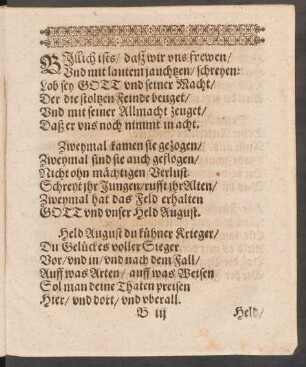 BIllich ists/ daß wir vns frewen/
Vnd mit lautem jauchtzen/ schreyen:
Lob sey GOTT vnd seiner Macht/
Der die stoltzen Feinde beuget/
Vnd mit seiner Allmacht zeuget/
Daß er vns noch nimmt in acht.
Zweymal kamen sie gezogen/
Zweymal sind sie auch geflogen/
Nicht ohn mächtigen Verlust.
Schreyt jhr Jungen/ rufft jhr Alten/
Zweymal hat das Feld erhalten
GOTT vnd vnser Held August.
Held August du kühner Krieger/
Du Gelückes voller Sieger
Vor/ vnd in/ vnd nach dem Fall/
Auff was Arten/ auff was Weisen
Sol man deine Thaten preisen
Hier/ vnd dort/ vnd vberall.
B iij Held/